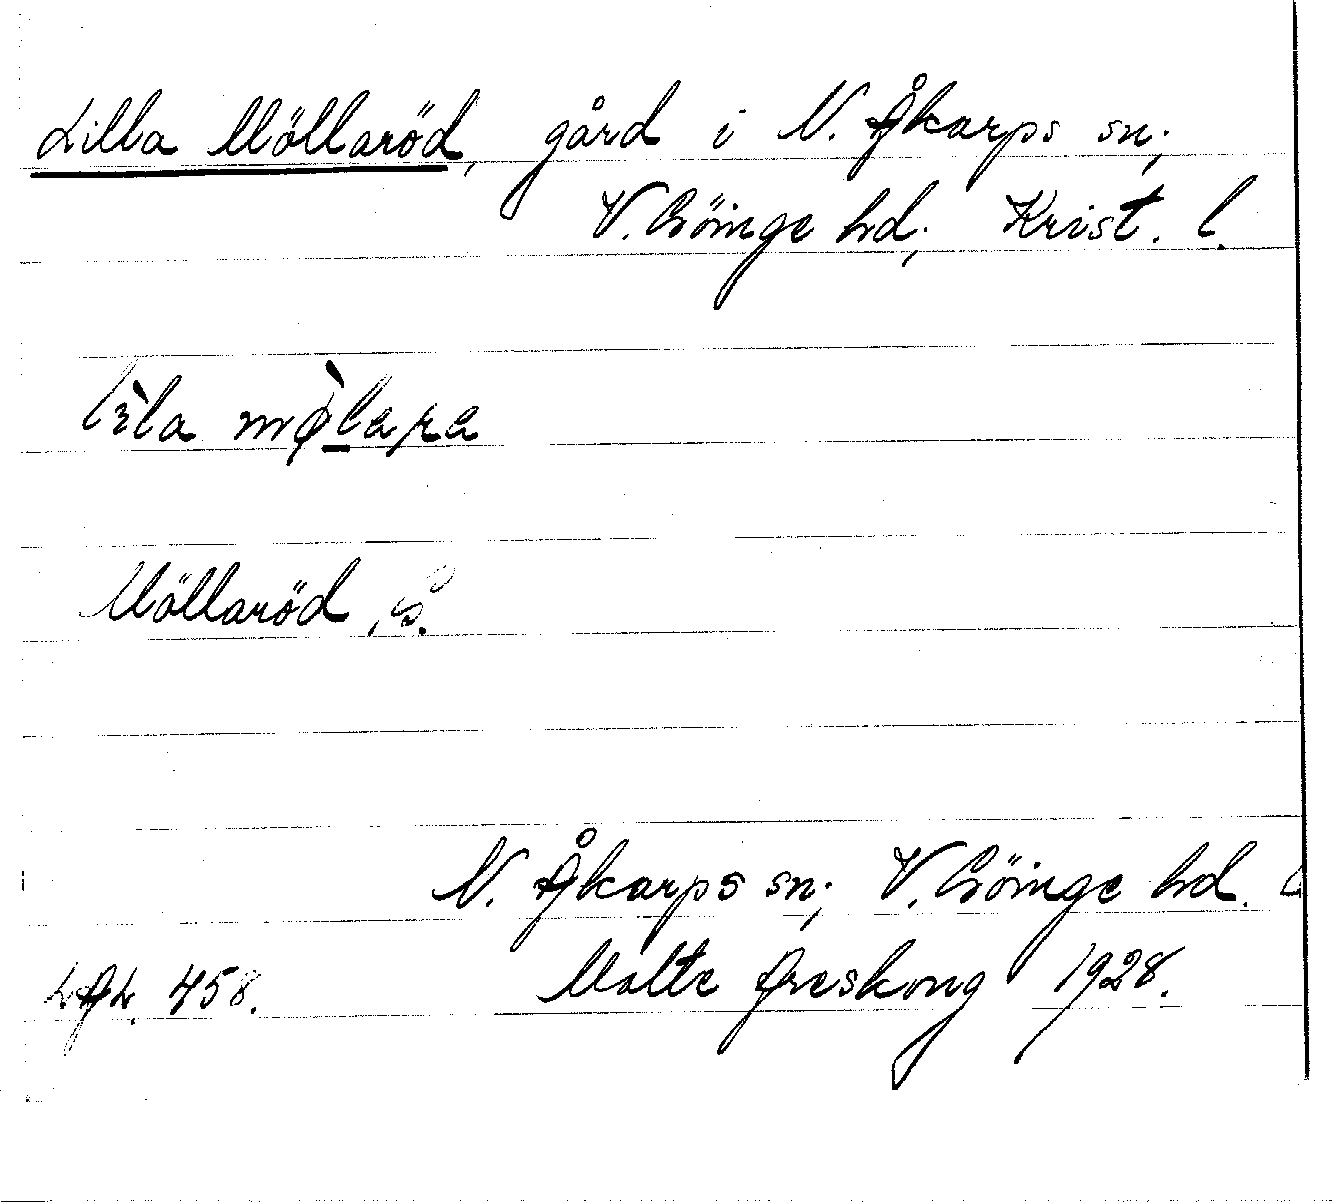 Lilla Möllaröd, gård i N. Åkarps sn;
V. Göinge hd; Krist. l.
lìla mø̀lara
Möllaröd, L.
N. Åkarps sn; V. Göinge hd.
LAL. 458. Malte Areskoug 1928.